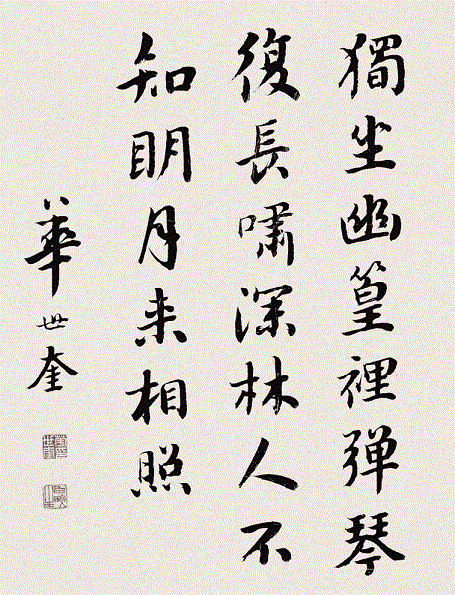 獨坐幽篁裡弹琴
復長嘯深林人不
知明月来相照
華世奎